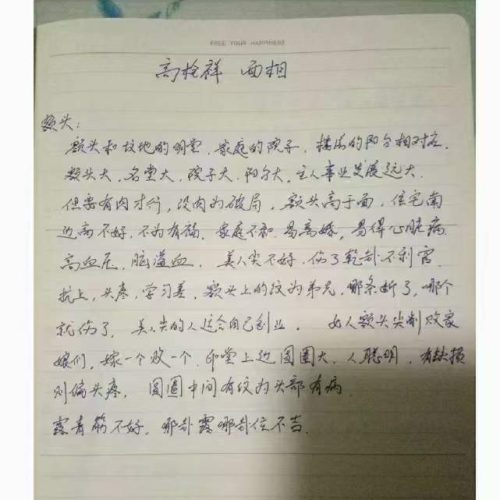 FREE YOUR HAPPINESS
高栓祥 面相
额头:
额头和坟地的明堂、家庭的院子、楼房的阳台相对应。
额头大,名堂大,院子大,阳台大,主人事业发展远大。
但要有肉才行,没肉为破局,额头高于面,住宅南
边高不好,不为有福,家庭不和,易离婚,易得心脏病
高血压,脑溢血,美人尖不好,伤了乾卦不利官
抗上,头疼,学习差,额头上的纹为弟兄,哪条断了,哪个
就伤了,美人尖的人适合自己创业, 女人额头尖削败家
娘们,嫁一个败一个,印堂上边圆圈大,人聪明,有缺损
则偏头疼, 圆圈中间有纹为头部有病
露青筋不好,哪卦露哪卦位不吉.